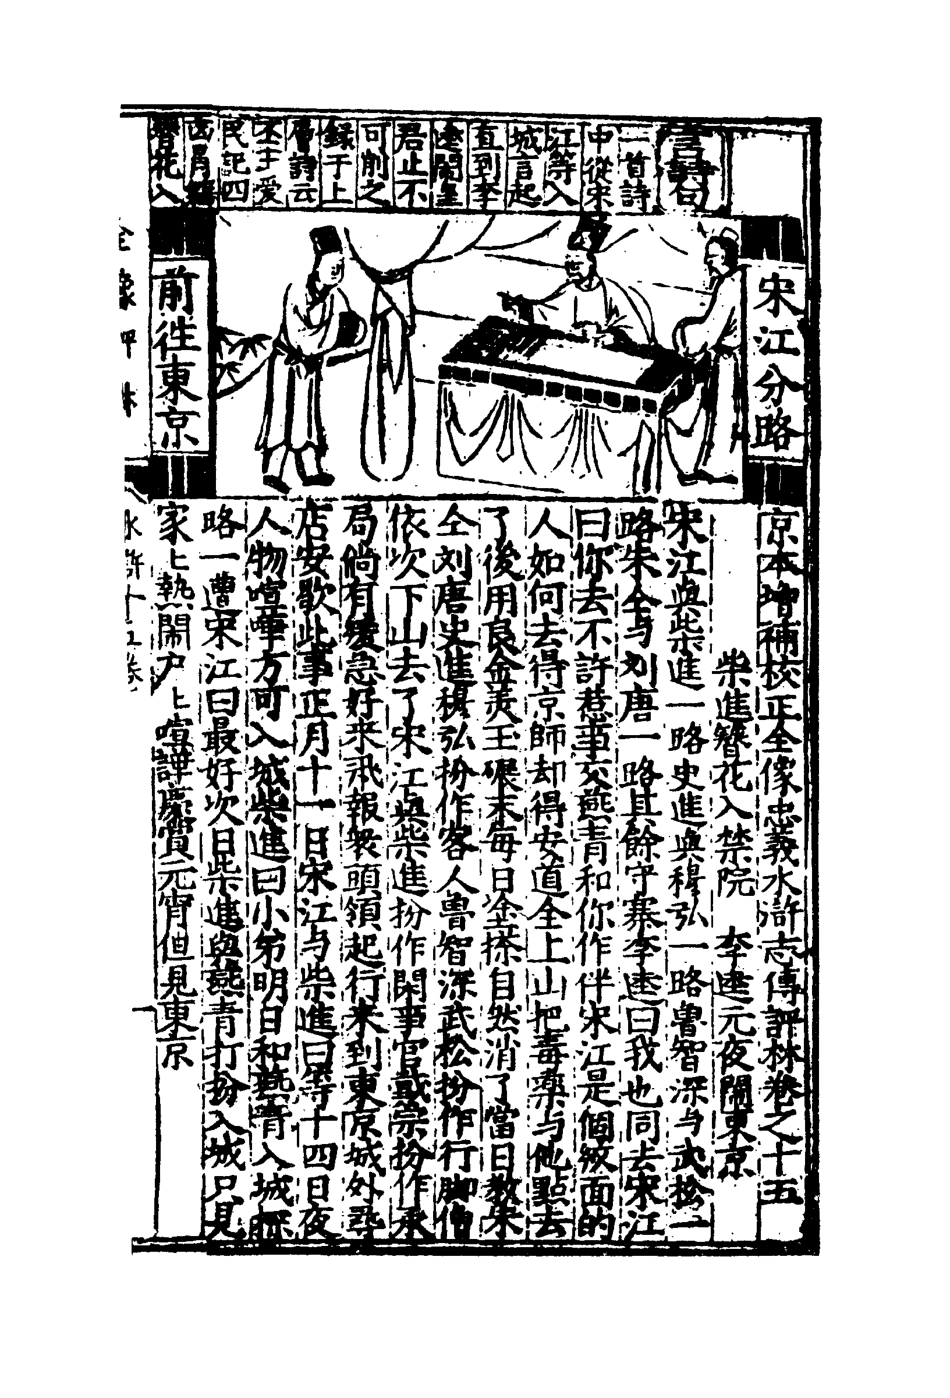 言詩句
一首詩
中從宋
江等入
城言起
直到李
逵鬧皇
君止不
可削之
録于上
層詩云
丕王愛
民記四
簪花入
宋江分路
前徃東京
京本增補校正全像忠義水滸志傳評林卷之十五
柴進簪花入禁院　李逵元夜鬧東京
宋江與柴進一路史進與穆弘一路魯智深与武松一
路朱仝与刘唐一路其餘守寨李逵曰我也同去宋江
曰你去不許惹事交燕青和你作伴宋江是個紋面的
人如何去得京師却得安道全上山把毒藥与他點去
了後用良金美玉碾末每日塗搽自然消了當日教朱
仝刘唐史進穆弘扮作客人魯智深武松扮作行脚僧
依次下山去了宋江與柴進扮作閑事官戴宗扮作承
局倘有緩急好来飛報衆頭領起行来到東京城外尋
店安歇此事正月十一日宋江与柴進曰等十四日夜
人物喧嘩方可入城柴進曰小弟明日和燕青入城探
路一遭宋江曰最好次日柴進與燕青打扮入城只見
家上熱閙户上喧譁慶賞元宵但見東京
全像評林
水滸十五卷